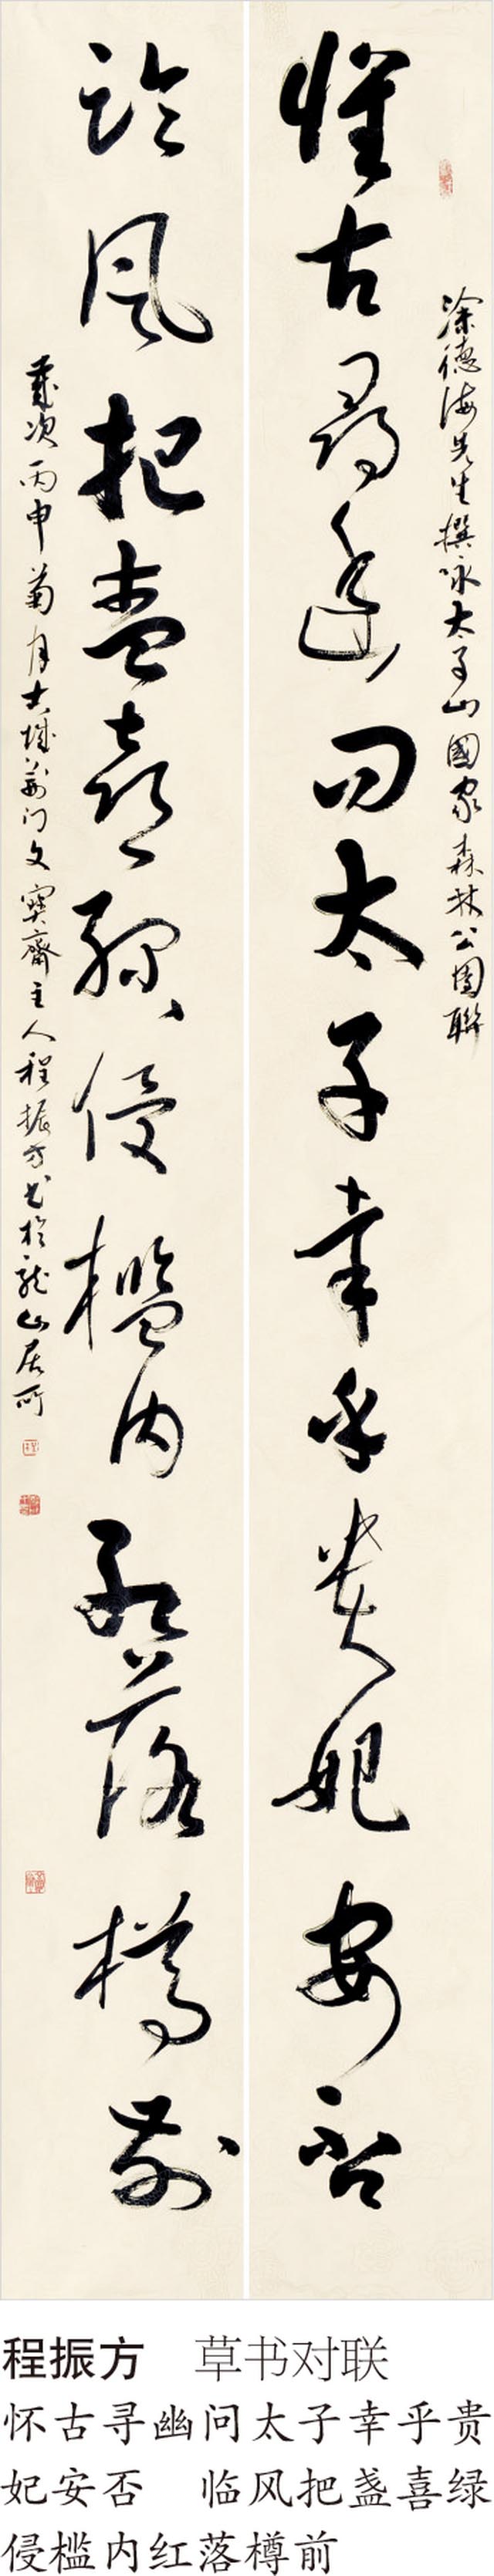 涂德海先生撰咏太子山國家森林公園聯
怀古尋幽问太子幸乎贵妃安否
临风把盏喜绿侵槛内红落樽前
歲次丙申菊月古城荆门文寶齋主人程振方书於龙山居所
程振方 草书对联
怀古寻幽问太子幸乎贵
妃安否 临风把盏喜绿
侵槛内红落樽前